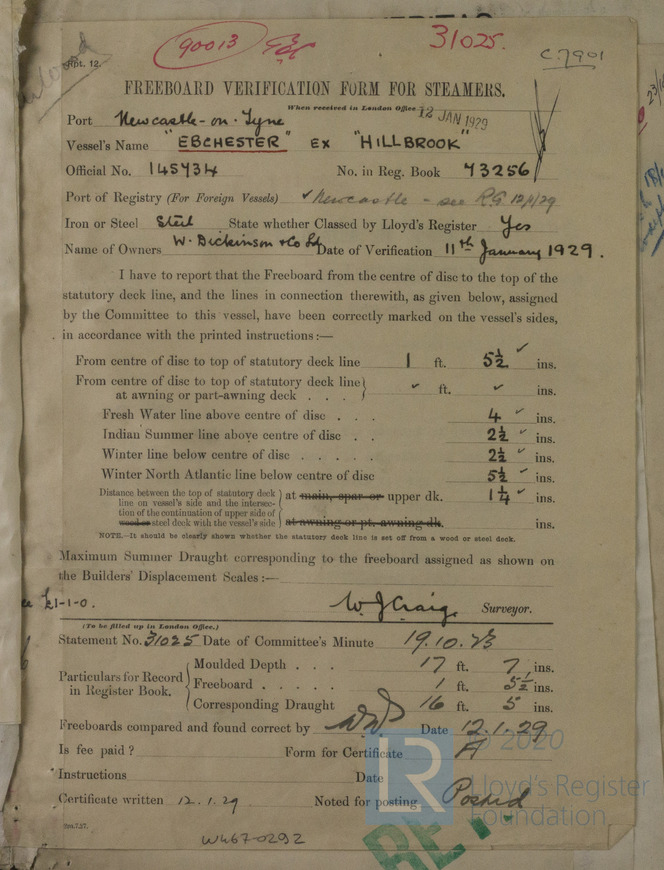 Rpt. 12.
90013
31025.
C.7901
FREEBOARD VERIFICATION FORM FOR STEAMERS.
When received in London Office 12 JAN 1929
Port Newcastle-on-Tyne
Vessel's Name "EBCHESTER" EX "HILLBROOK"
Official No. 145434 No. in Reg. Book 43256
Port of Registry (For Foreign Vessels) ✓ Newcastle - see R.G 12/1/29
Iron or Steel Steel State whether Classed by Lloyd's Register Yes
Name of Owners W. Dickinson & Co Ld Date of Verification 11th January 1929.
I have to report that the Freeboard from the centre of disc to the top of the
statutory deck line, and the lines in connection therewith, as given below, assigned
by the Committee to this vessel, have been correctly marked on the vessel's sides,
in accordance with the printed instructions:—
From centre of disc to top of statutory deck line 1 ft. 5½ ✓ ins.
From centre of disc to top of statutory deck line
at awning or part-awning deck . . . ✓ ft. ✓ ins.
Fresh Water line above centre of disc . . . 4 ✓ ins.
Indian Summer line above centre of disc . . 2½ ✓ ins.
Winter line below centre of disc . . . . . 2½ ✓ ins.
Winter North Atlantic line below centre of disc 5½ ✓ ins.
Distance between the top of statutory deck
line on vessel's side and the intersec-
tion of the continuation of upper side of
wood or steel deck with the vessel's side
at main, spar or upper dk. 1¼ ✓ ins.
at awning or pt. awning dk. ins.
NOTE.—It should be clearly shown whether the statutory deck line is set off from a wood or steel deck.
Maximum Summer Draught corresponding to the freeboard assigned as shown on
the Builders' Displacement Scales:—
£1-1-0.
W J Craig Surveyor.
(To be filled up in London Office.)
Statement No. 31025 Date of Committee's Minute 19.10.23
Particulars for Record
in Register Book.
Moulded Depth . . . 17 ft. 7 ins.
Freeboard . . . . . 1 ft. 5½ ins.
Corresponding Draught 16 ft. 5 ins.
Freeboards compared and found correct by Date 12.1.29
Is fee paid? Form for Certificate A
Instructions Date
Certificate written 12.1.29 Noted for posting Posted
2m.7.27.
W467-0292
© 2020
LR
Lloyd's Register
Foundation
RET